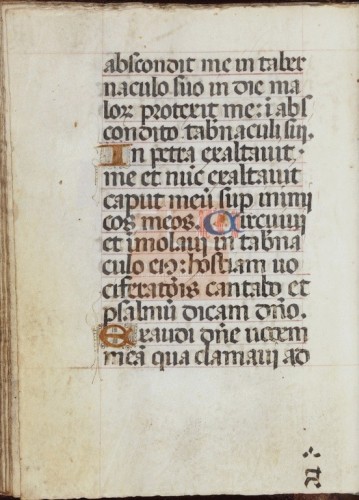 abscondit me in taber
naculo suo in die ma
lor protexit me: i abs
condito tabnaculi sui.
In petra exaltavit
me et nuc exaltavit
caput meu sup inimi
cos meos. Circuivi
et imolavi in tabna
culo ei9: hostiam vo
ciferatois cantabo et
psalmu dicam dno.
Exaudi dne vocem
mea qua clamavi ad